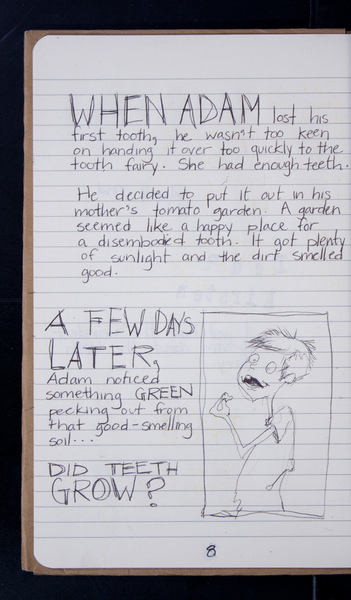 WHEN ADAM lost his
first tooth, he wasn't too keen
on handing it over too quickly to the
tooth fairy. She had enough teeth.
He decided to put it out in his
mother's tomato garden. A garden
seemed like a happy place for
a disembodied tooth. It got plenty
of sunlight and the dirt smelled
good.
A FEW DAYS
LATER,
Adam noticed
something GREEN
peeking out from
that good-smelling
soil...
DID TEETH
GROW?
8